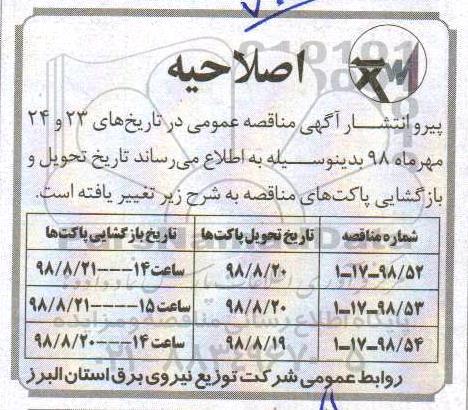 اصلاحیه
پیرو انتشار آگهی مناقصه عمومی در تاریخ‌های ۲۳ و ۲۴
مهرماه ۹۸ بدینوسیله به اطلاع می‌رساند تاریخ تحویل و
بازگشایی پاکت‌های مناقصه به شرح زیر تغییر یافته است.
شماره مناقصه تاریخ تحویل پاکت‌ها تاریخ بازگشایی پاکت‌ها
۱-۱۷-۹۸/۵۲ ۹۸/۸/۲۰ ساعت ۱۴----۹۸/۸/۲۱
۱-۱۷-۹۸/۵۳ ۹۸/۸/۲۰ ساعت ۱۵----۹۸/۸/۲۱
۱-۱۷-۹۸/۵۴ ۹۸/۸/۱۹ ساعت ۱۴----۹۸/۸/۲۰
روابط عمومی شرکت توزیع نیروی برق استان البرز